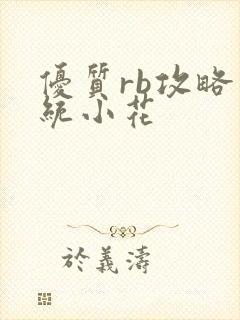 優質rb攻略
統小花
於義濤